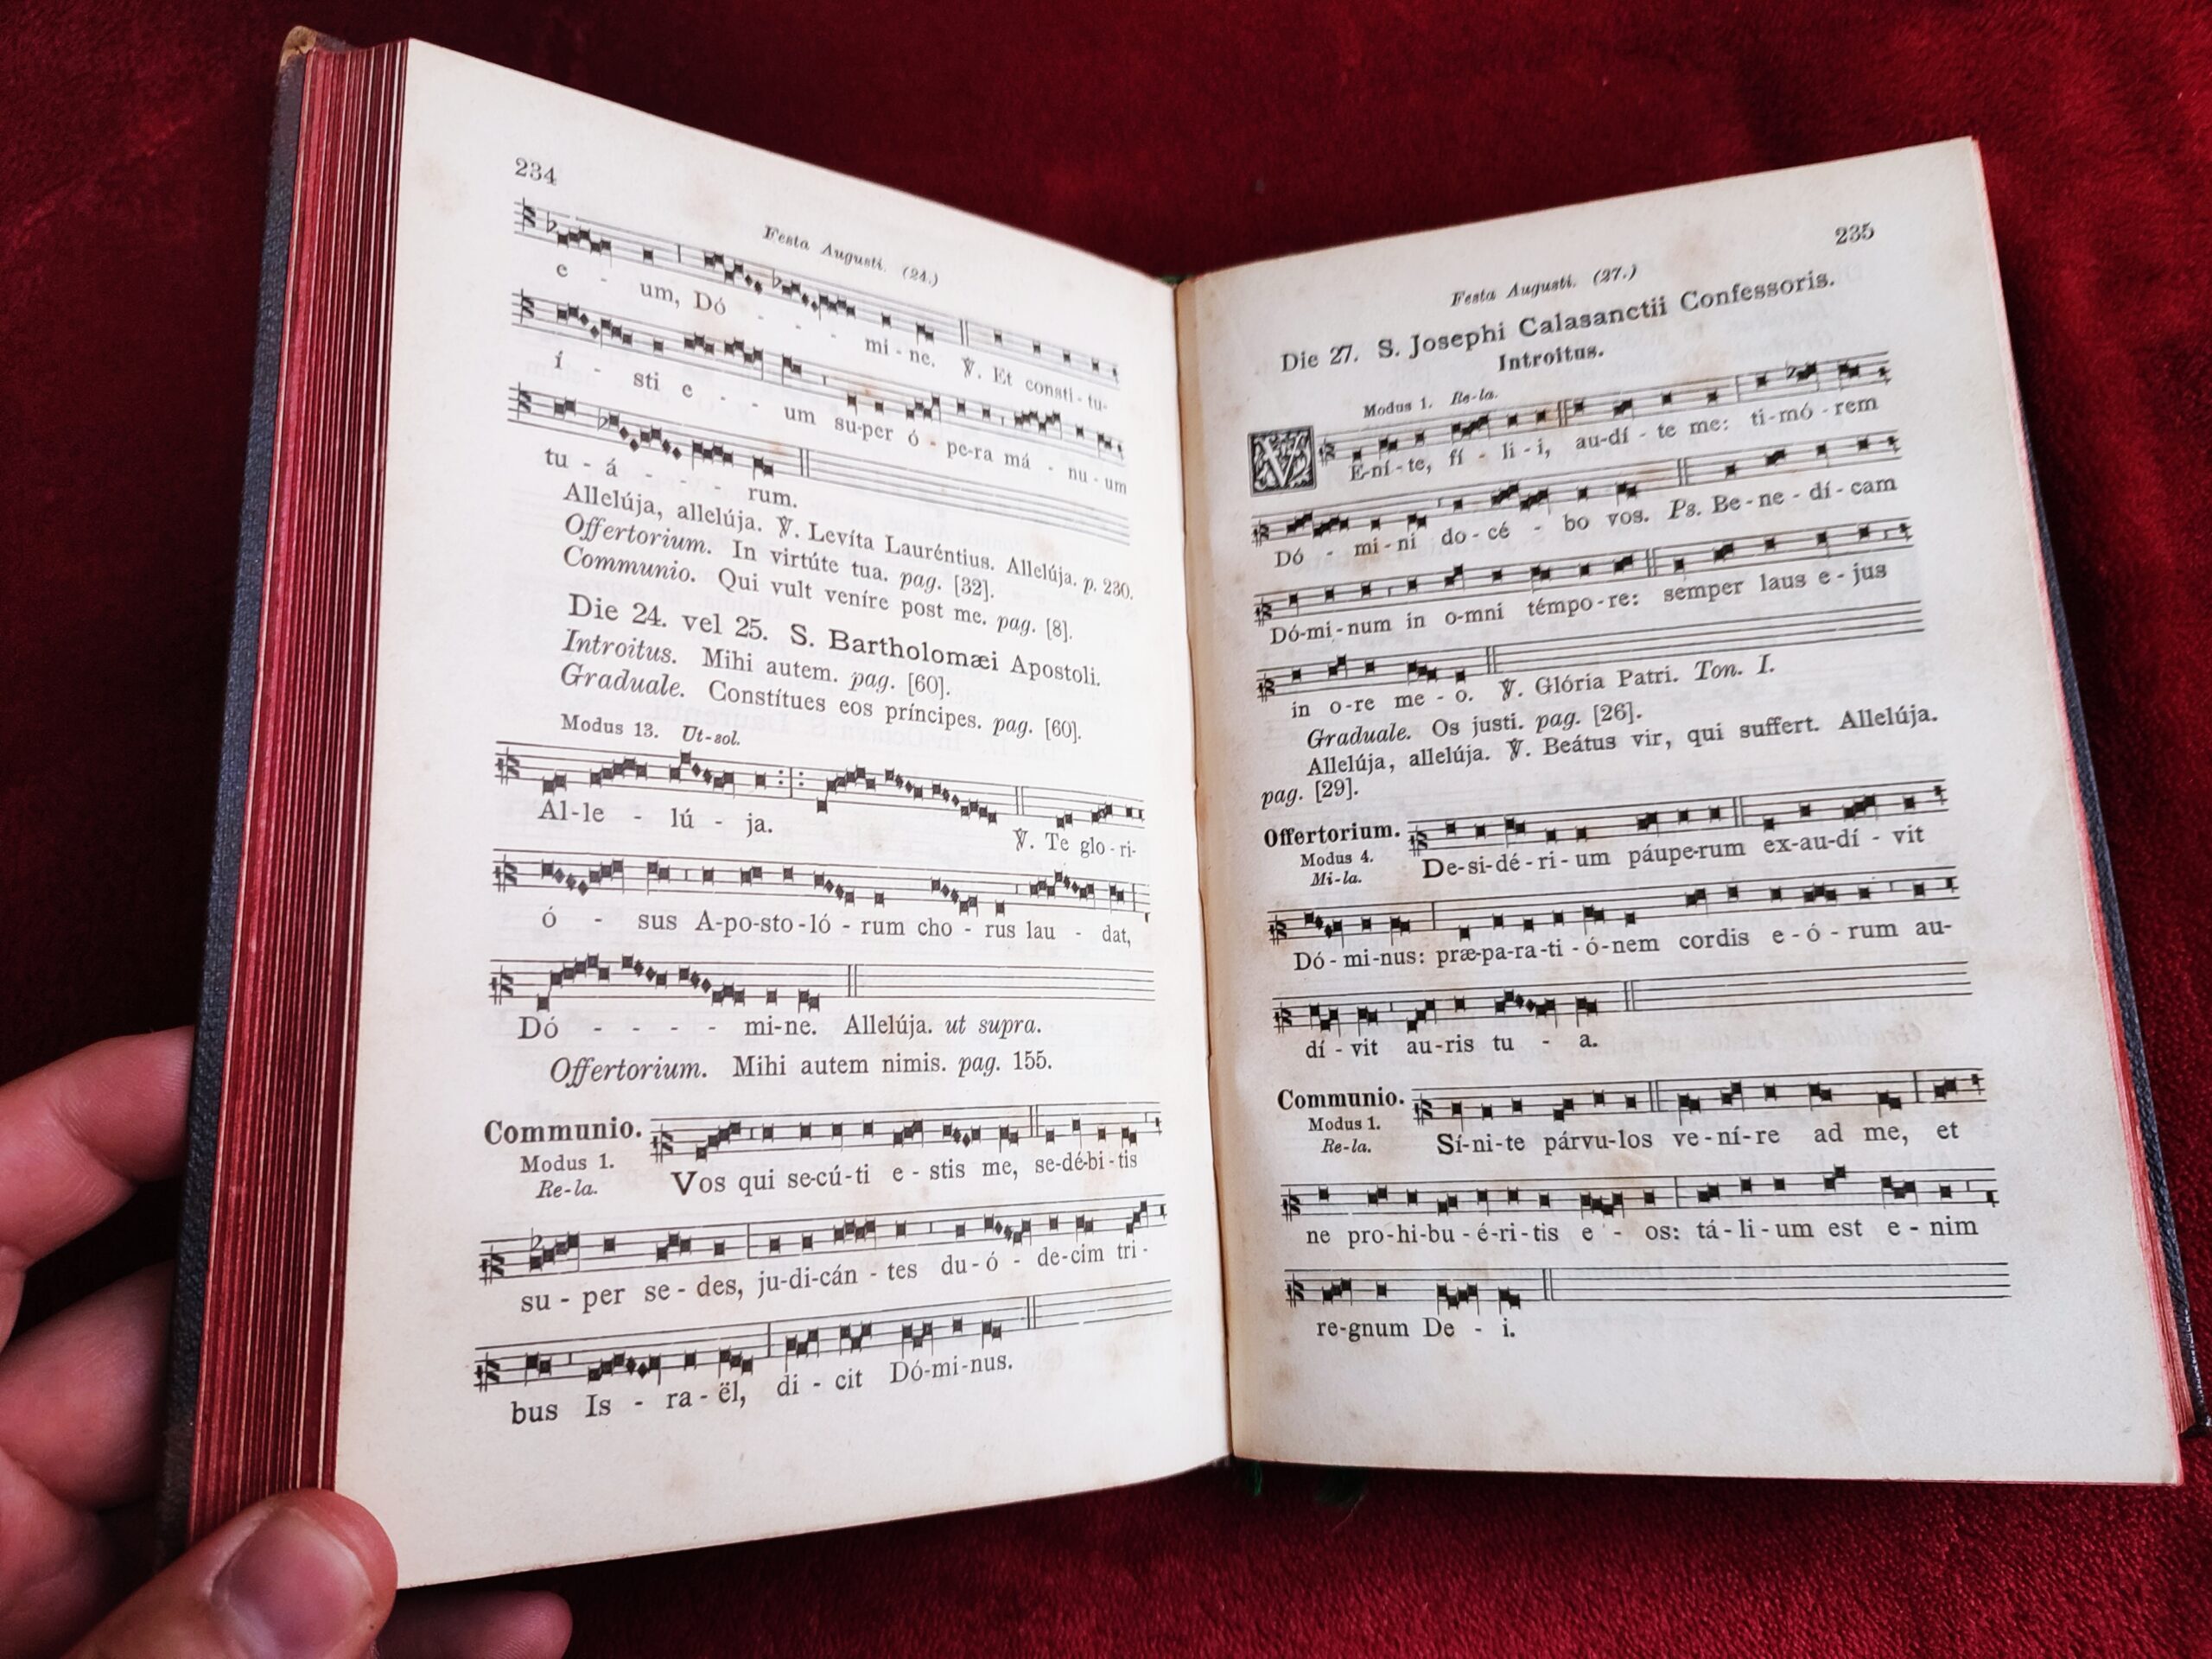 234
Festa Augusti. (24.)
e - um, Dó - - - mi - ne. ℣. Et consti - tu-
í - sti e - - um su-per ó - pe-ra má - nu - um
tu - á - - - rum.
Allelúja, allelúja. ℣. Levíta Lauréntius. Allelúja. p. 230.
Offertorium. In virtúte tua. pag. [32].
Communio. Qui vult veníre post me. pag. [8].
Die 24. vel 25. S. Bartholomæi Apostoli.
Introitus. Mihi autem. pag. [60].
Graduale. Constítues eos príncipes. pag. [60].
Modus 13. Ut-sol.
Al-le - lú - ja. ℣. Te glo - ri-
ó - sus A-po-sto-ló - rum cho - rus lau - dat,
Dó - - - - mi-ne. Allelúja. ut supra.
Offertorium. Mihi autem nimis. pag. 155.
Communio.
Modus 1.
Re-la.
Vos qui se-cú-ti e - stis me, se-dé-bi-tis
su - per se - des, ju-di-cán - tes du-ó - de-cim tri -
bus Is - ra - ël, di - cit Dó-mi-nus.
235
Festa Augusti. (27.)
Die 27. S. Josephi Calasanctii Confessoris.
Introitus.
Modus 1. Re-la.
VE-ní-te, fí - li - i, au-dí - te me: ti-mó - rem
Dó - mi - ni do - cé - bo vos. Ps. Be - ne - dí - cam
Dó-mi-num in o-mni témpo-re: semper laus e - jus
in o-re me - o. ℣. Glória Patri. Ton. I.
Graduale. Os justi. pag. [26].
Allelúja, allelúja. ℣. Beátus vir, qui suffert. Allelúja.
pag. [29].
Offertorium.
Modus 4.
Mi-la.
De-si-dé-ri-um páupe-rum ex-au-dí - vit
Dó - mi-nus: præ-pa-ra-ti - ó-nem cordis e - ó - rum au-
dí - vit au-ris tu - a.
Communio.
Modus 1.
Re-la.
Sí-ni-te párvu-los ve-ní-re ad me, et
ne pro-hi-bu-é-ri-tis e - os: tá-li-um est e - nim
re-gnum De - i.